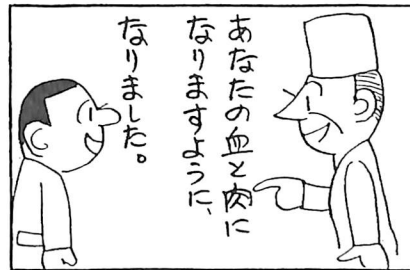 あなたの血と肉に
なりますように、
なりました。